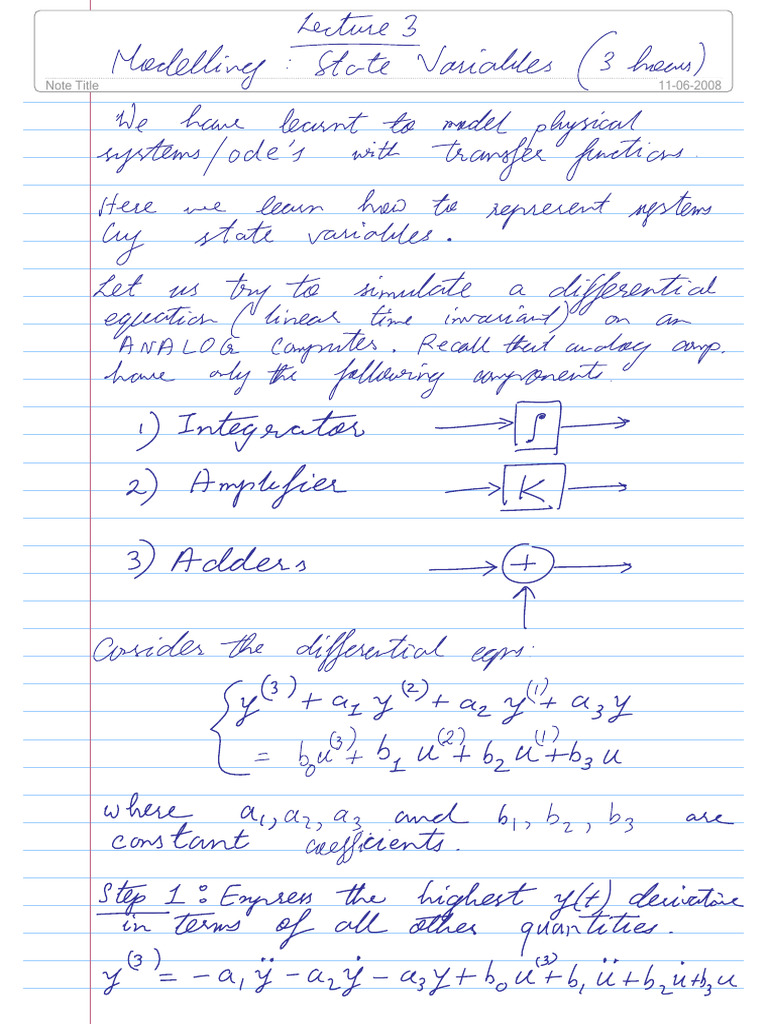 Lecture 3
Modelling : State Variables (3 hours)
Note Title
11-06-2008
We have learnt to model physical
systems/ode's with transfer functions.
Here we learn how to represent systems
by state variables.
Let us try to simulate a differential
equation (linear time invariant) on an
ANALOG Computer. Recall that analog comp.
have only the following components.
1) Integrator ∫
2) Amplifier K
3) Adders +
Consider the differential eqns:
y^(3) + a₁ y^(2) + a₂ y^(1) + a₃ y
= b₀u^(3) + b₁ u^(2) + b₂ u^(1) + b₃ u
where a₁, a₂, a₃ and b₁, b₂, b₃ are
constant coefficients.
Step 1: Express the highest y(t) derivative
in terms of all other quantities.
y^(3) = -a₁ÿ - a₂ẏ - a₃y + b₀u^(3) + b₁ü + b₂u̇ + b₃u